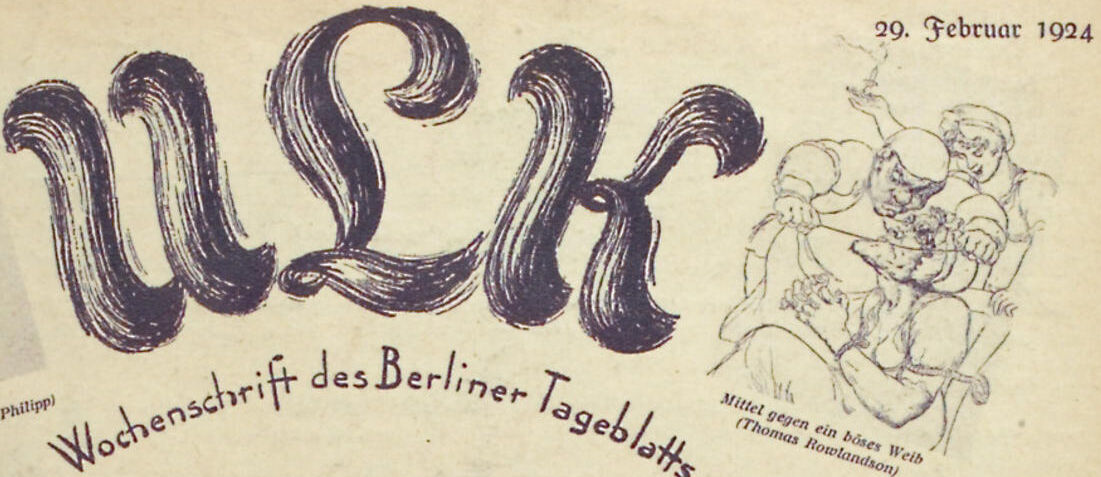 29. Februar 1924
ULK
Philipp)
Wochenschrift des Berliner Tageblatts
Mittel gegen ein böses Weib
(Thomas Rowlandson)